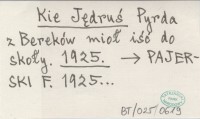 Kie Jędruś Pyrda
z Bereków mioł iść do
skoły. 1925. → PAJER-
SKI F. 1925...
BT/025/0619